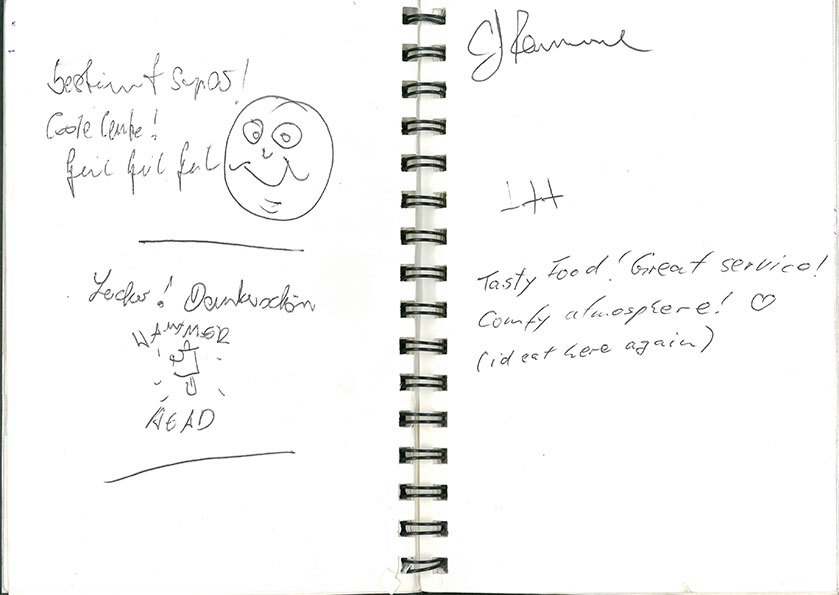 bestimmt super!
Coole Leute!
Geil Geil Geil
Lecker! Dankeschön
HAMMER
HEAD
CJ Ramone
Tasty Food! Great service!
Comfy atmosphere! ♡
(id eat here again)